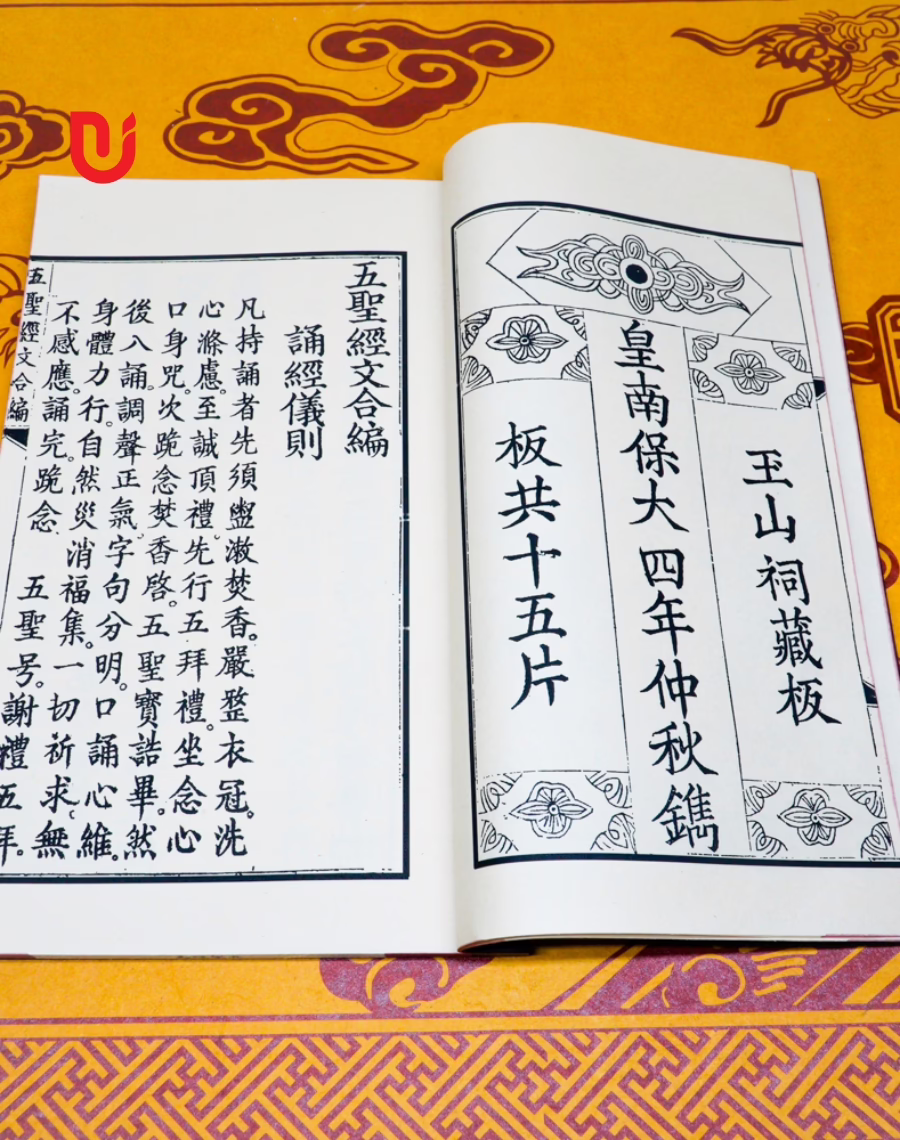 玉山祠藏板
皇南保大四年仲秋鐫
板共十五片
五聖經文合編
誦經儀則
凡持誦者先須盥漱焚香。嚴整衣冠。洗
心滌慮。至誠頂禮。先行五拜禮。坐念心
口身咒。次跪念焚香啓。五聖寶誥畢。然
後入誦。調聲正氣。字句分明。口誦心維。
身體力行。自然災消福集。一切祈求、無
不感應。誦完。跪念 五聖号。謝禮五拜。
五聖經文合編